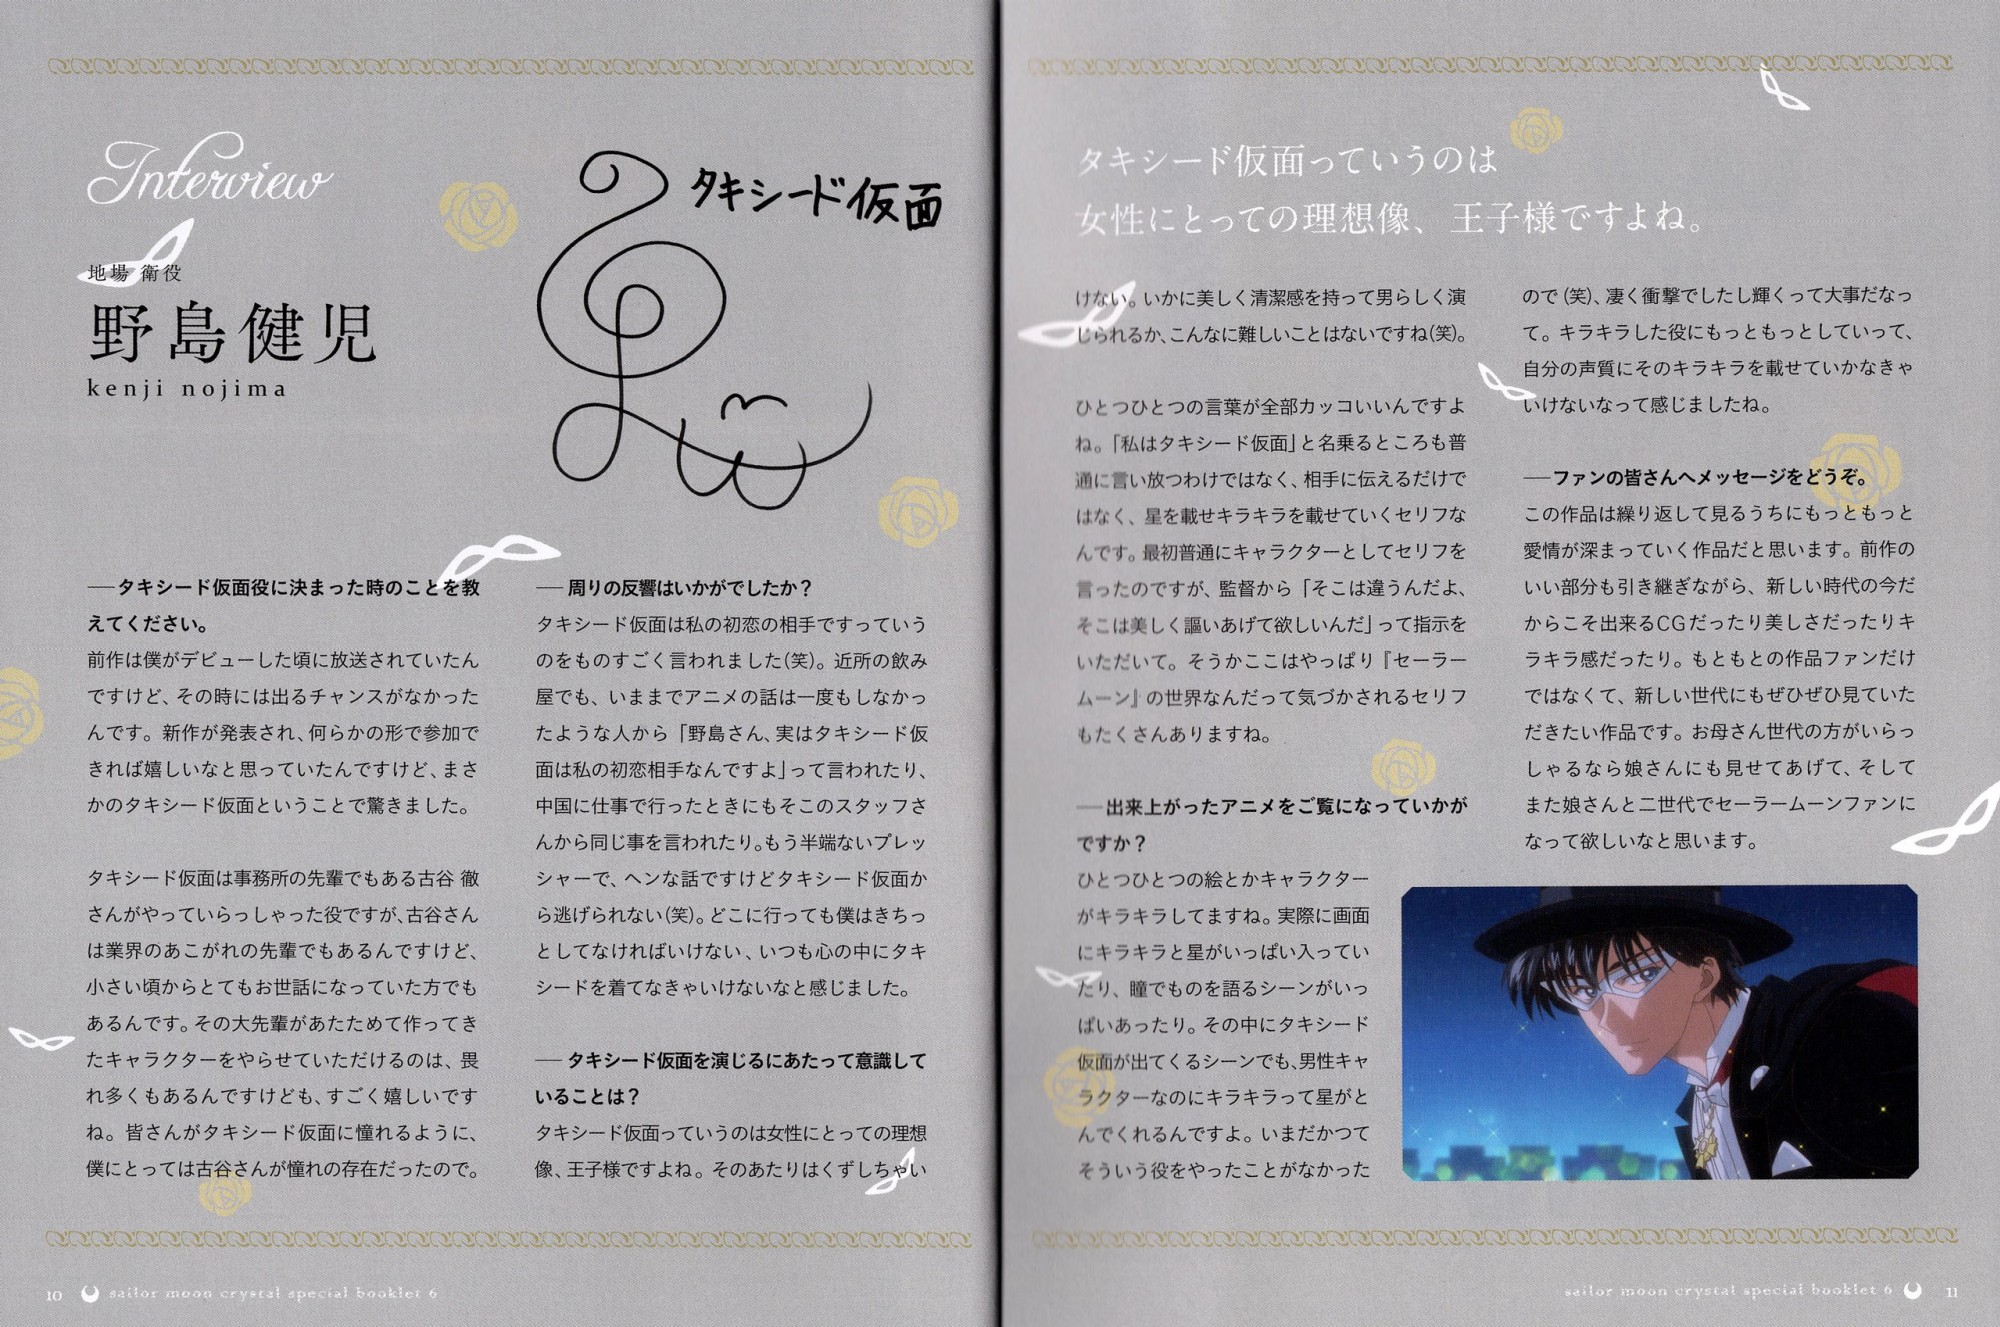 Interview
地場 衛役
野島健児
kenji nojima
タキシード仮面
――タキシード仮面役に決まった時のことを教
えてください。
前作は僕がデビューした頃に放送されていたん
ですけど、その時には出るチャンスがなかった
んです。新作が発表され、何らかの形で参加で
きれば嬉しいなと思っていたんですけど、まさ
かのタキシード仮面ということで驚きました。
タキシード仮面は事務所の先輩でもある古谷 徹
さんがやっていらっしゃった役ですが、古谷さん
は業界のあこがれの先輩でもあるんですけど、
小さい頃からとてもお世話になっていた方でも
あるんです。その大先輩があたためて作ってき
たキャラクターをやらせていただけるのは、畏
れ多くもあるんですけども、すごく嬉しいです
ね。皆さんがタキシード仮面に憧れるように、
僕にとっては古谷さんが憧れの存在だったので。
――周りの反響はいかがでしたか？
タキシード仮面は私の初恋の相手ですっていう
のをものすごく言われました（笑）。近所の飲み
屋でも、いままでアニメの話は一度もしなかっ
たような人から「野島さん、実はタキシード仮
面は私の初恋相手なんですよ」って言われたり、
中国に仕事で行ったときにもそこのスタッフさ
んから同じ事を言われたり。もう半端ないプレッ
シャーで、ヘンな話ですけどタキシード仮面か
ら逃げられない（笑）。どこに行っても僕はきちっ
としてなければいけない、いつも心の中にタキ
シードを着てなきゃいけないなと感じました。
――タキシード仮面を演じるにあたって意識して
いることは？
タキシード仮面っていうのは女性にとっての理想
像、王子様ですよね。そのあたりはくずしちゃい
10 sailor moon crystal special booklet 6
タキシード仮面っていうのは
女性にとっての理想像、王子様ですよね。
けない。いかに美しく清潔感を持って男らしく演
じられるか、こんなに難しいことはないですね（笑）。
ひとつひとつの言葉が全部カッコいいんですよ
ね。「私はタキシード仮面」と名乗るところも普
通に言い放つわけではなく、相手に伝えるだけで
はなく、星を載せキラキラを載せていくセリフな
んです。最初普通にキャラクターとしてセリフを
言ったのですが、監督から「そこは違うんだよ、
そこは美しく謳いあげて欲しいんだ」って指示を
いただいて。そうかここはやっぱり『セーラー
ムーン』の世界なんだって気づかされるセリフ
もたくさんありますね。
――出来上がったアニメをご覧になっていかが
ですか？
ひとつひとつの絵とかキャラクター
がキラキラしてますね。実際に画面
にキラキラと星がいっぱい入ってい
たり、瞳でものを語るシーンがいっ
ぱいあったり。その中にタキシード
仮面が出てくるシーンでも、男性キャ
ラクターなのにキラキラって星がと
んでくれるんですよ。いまだかつて
そういう役をやったことがなかった
ので（笑）、凄く衝撃でしたし輝くって大事だなっ
て。キラキラした役にもっともっとしていって、
自分の声質にそのキラキラを載せていかなきゃ
いけないなって感じましたね。
――ファンの皆さんへメッセージをどうぞ。
この作品は繰り返して見るうちにもっともっと
愛情が深まっていく作品だと思います。前作の
いい部分も引き継ぎながら、新しい時代の今だ
からこそ出来るCGだったり美しさだったりキ
ラキラ感だったり。もともとの作品ファンだけ
ではなくて、新しい世代にもぜひぜひ見ていた
だきたい作品です。お母さん世代の方がいらっ
しゃるなら娘さんにも見せてあげて、そして
また娘さんと二世代でセーラームーンファンに
なって欲しいなと思います。
sailor moon crystal special booklet 6 11